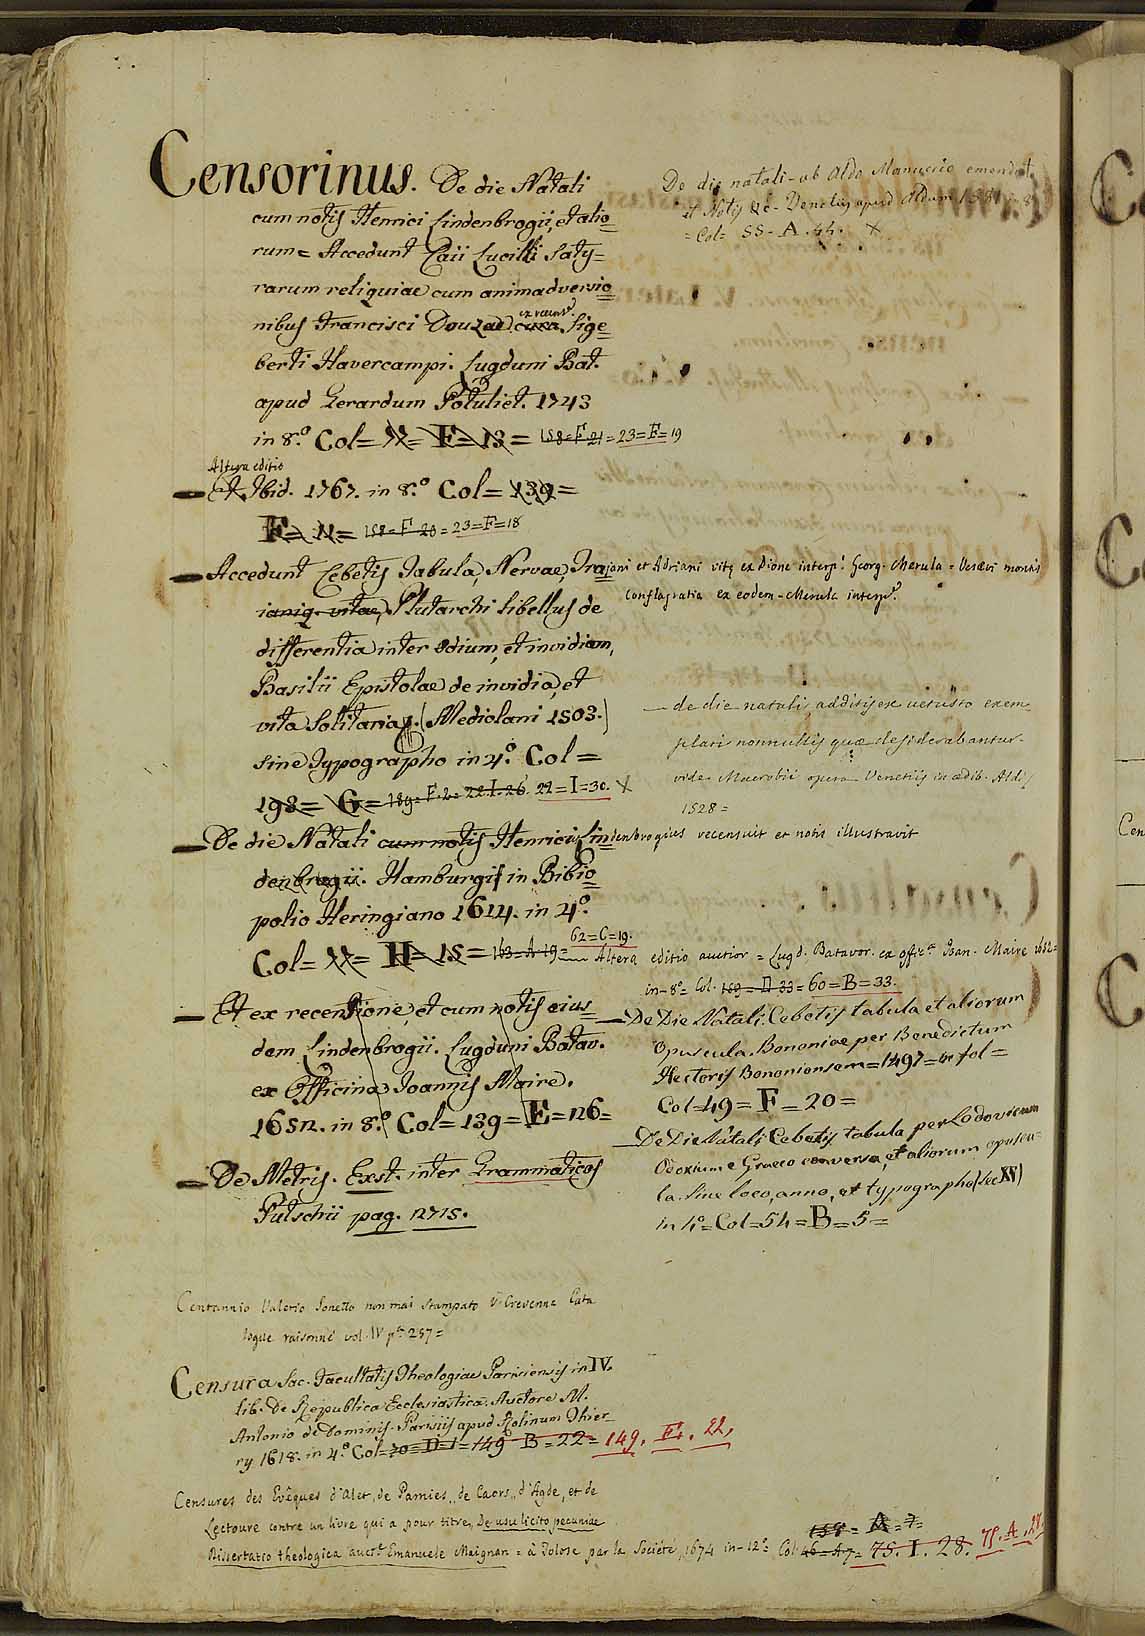 Censorinus. De die Natali
cum notis Henrici Lindenbrogii, et alio=
rum = Accedunt Caii Lucilli Saty=
rarum reliquiae cum animadversio=
nibus Francisci Douzae, cura ex recens.e Sige=
berti Havercampi. Lugduni Bat.
apud Gerardum Potuliet. 1743
in 8.º Col= XX= F= 13 = 158=F 21 = 23=F= 19
Altera editio
— Et Ibid. 1767. in 8.º Col= 139=
F= 11= 158=F 20 = 23=F=18
— Accedunt Cebetis Tabula, Nervae, Trajani et Adriani vitę ex Dione interp.e Georg. Merula = Vesaevi montis
ianiq. vitae, Plutarchi libellus de conflagratia ex eodem Merula interp.e
differentia inter odium, et invidiam,
Basilii Epistolae de invidia, et
vita Solitaria. (Mediolani 1503.)
sine Typographo in 4.º Col=
198= G= 189=F.2= 22.I.26. 22=I=30. X
— De die Natali cum notis Henricus Lindenbrogius recensuit et notis illustravit
denbrogii. Hamburgis in Bibio=
polio Heringiano 1614. in 4.º
Col= XX= H= 15= 163=A 19= 62=C=19.
— Et ex recensione, et cum notis eius=
dem Lindenbrogii. Lugduni Batav.
ex Officina Joannis Maire.
1652. in 8.º Col= 139= E= 126=
— De Metris. Exst. inter Grammaticos
Putschii pag. 2715.
De die natali - ab Aldo Manuccio emendat.
et Notis &c - Venetiis apud Aldum 1581 in 8º
= Col= 55 - A. 44. X
— de die natali, additis ex vetusto exem=
plari nonnullis quæ desiderabantur.
vide Macrobii opera Venetiis in ædib. Aldi
1528 =
— Altera editio auctior = Lugd. Batavor. ex offic.a Joan. Maire 1642=
in-8º= Col. 159= D 33= 60=B=33.
— De Die Natali. Cebetis tabula et aliorum
Opuscula. Bononiae per Benedictum
Hectoris Bononiensem = 1497 = in fol=
Col=49= F=20=
— De Die Natali Cebetis tabula per Lodovicum
Odoxium e Graeco conversa, et aliorum opuscu=
la. Sine loco, anno, et typographo (sec XV)
in 4º= Col=54= B=5=
Centannio Valerio Sonetto non mai stampato V. Crevenne Cata
logue raisonné vol. IV p.e 257=
Censura Sac. Facultatis Theologiae Parisiensis in IV.
lib. De Republica Ecclesiastica. Auctore M.
Antonio de Dominis. Parisiis apud Rolinum Thier=
ry 1618. in 4.º Col=70= D 1= 149 B=22= 149. E. 22,
Censures des Evêques d'Alet, de Pamies, de Caors, d'Agde, et de
Lectoure contre un livre qui a pour titre, De usu licito pecuniae
Dissertatio theologica auct.e Emanuele Maignan = à Tolose par la Societé, 1674 in-12º= Col. 46=A 7= 75. I. 28. 75. A. 28.
158= A=7=